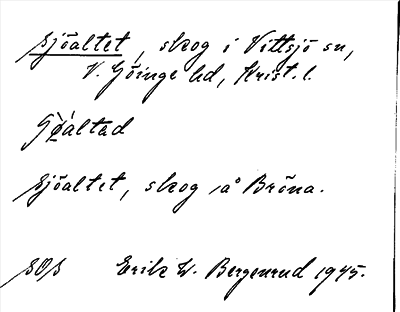 Sjöaltet, skog i Vittsjö sn,
V. Göinge hd, Krist. l.
Sjöaltet, skog på Bröna.
SOS Erik W. Bergenrud 1945.